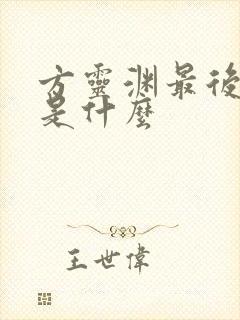 方靈渊最後
是什麼
王世偉